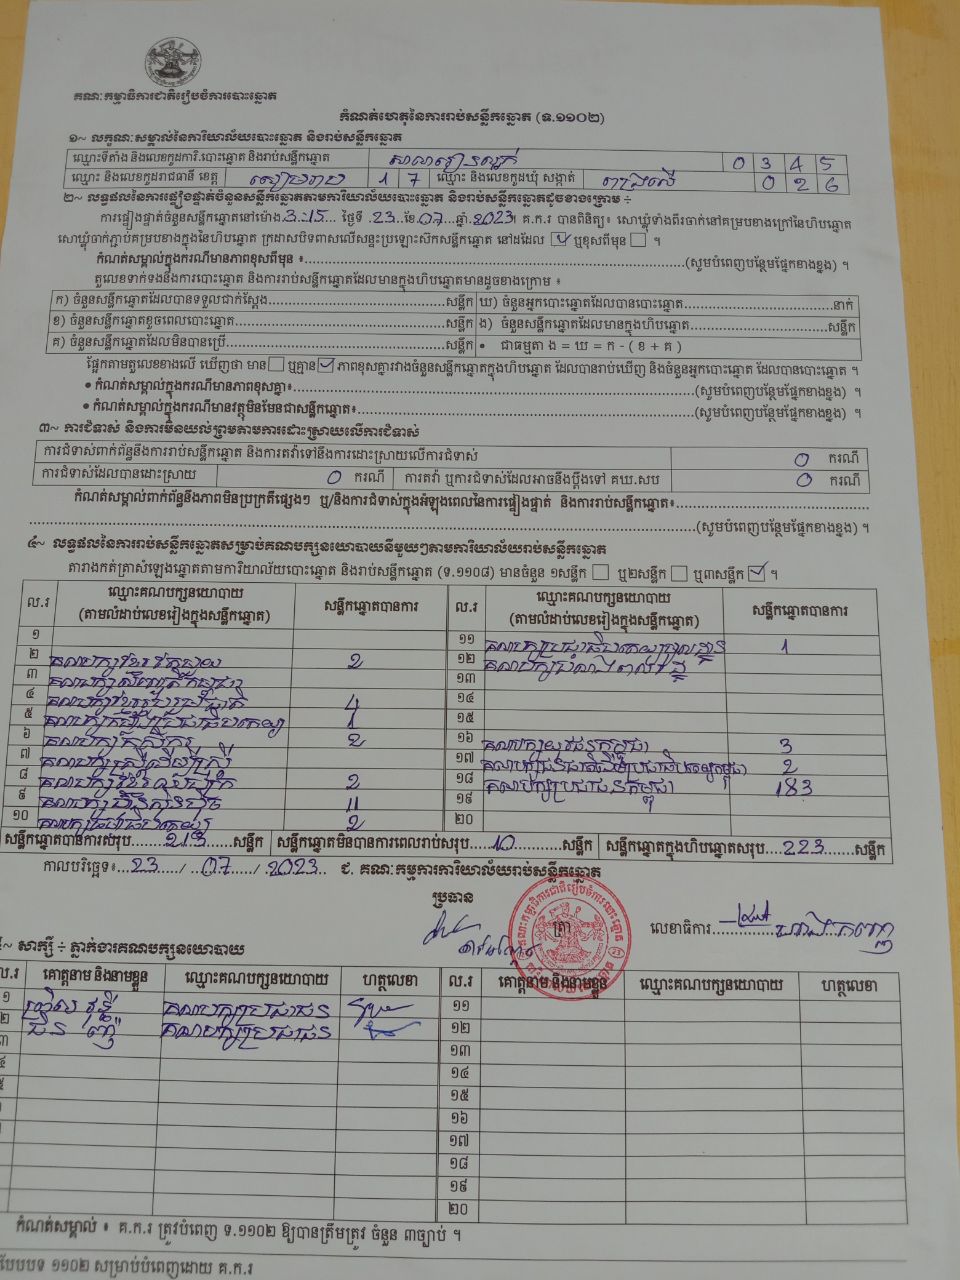 គណៈកម្មាធិការជាតិរៀបចំការបោះឆ្នោត
កំណត់ហេតុនៃការរាប់សន្លឹកឆ្នោត (ទ.១១០២)
១~ លក្ខណៈសម្គាល់នៃការិយាល័យបោះឆ្នោត និងរាប់សន្លឹកឆ្នោត
ឈ្មោះទីតាំង និងលេខកូដការិ.បោះឆ្នោត និងរាប់សន្លឹកឆ្នោត 0 3 4 5
ឈ្មោះ និងលេខកូដរាជធានី ខេត្ត សៀមរាប 1 7 ឈ្មោះ និងលេខកូដឃុំ សង្កាត់ 0 2 6
២~ លទ្ធផលនៃការផ្ទៀងផ្ទាត់ចំនួនសន្លឹកឆ្នោតតាមការិយាល័យបោះឆ្នោត និងរាប់សន្លឹកឆ្នោតដូចខាងក្រោម ÷
ការផ្ទៀងផ្ទាត់ចំនួនសន្លឹកឆ្នោតនៅម៉ោង 3:15 ថ្ងៃទី 23 ខែ 07 ឆ្នាំ 2023។ គ.ក.រ បានពិនិត្យ៖ សោឃ្លុំទាំងពីរចាក់នៅគម្របខាងក្រៅនៃហិបឆ្នោត
សោឃ្លុំចាក់ភ្ជាប់គម្របខាងក្នុងនៃហិបឆ្នោត ក្រដាសបិទពាសលើសន្ទះប្រឡោះស៊កសន្លឹកឆ្នោត នៅដដែល ឬខុសពីមុន ។
កំណត់សម្គាល់ក្នុងករណីមានភាពខុសពីមុន ៖ (សូមបំពេញបន្ថែមផ្នែកខាងខ្នង) ។
តួលេខទាក់ទងនឹងការបោះឆ្នោត និងការរាប់សន្លឹកឆ្នោតដែលមានក្នុងហិបឆ្នោតមានដូចខាងក្រោម ៖
ក) ចំនួនសន្លឹកឆ្នោតដែលបានទទួលជាក់ស្តែង សន្លឹក ឃ) ចំនួនអ្នកបោះឆ្នោតដែលបានបោះឆ្នោត នាក់
ខ) ចំនួនសន្លឹកឆ្នោតខូចពេលបោះឆ្នោត សន្លឹក ង) ចំនួនសន្លឹកឆ្នោតដែលមានក្នុងហិបឆ្នោត សន្លឹក
គ) ចំនួនសន្លឹកឆ្នោតដែលមិនបានប្រើ សន្លឹក • ជាធម្មតា ង = ឃ = ក - ( ខ + គ )
ផ្អែកតាមតួលេខខាងលើ ឃើញថា មាន ឬគ្មាន ភាពខុសគ្នារវាងចំនួនសន្លឹកឆ្នោតក្នុងហិបឆ្នោត ដែលបានរាប់ឃើញ និងចំនួនអ្នកបោះឆ្នោត ដែលបានបោះឆ្នោត ។
• កំណត់សម្គាល់ក្នុងករណីមានភាពខុសគ្នា៖ (សូមបំពេញបន្ថែមផ្នែកខាងខ្នង) ។
• កំណត់សម្គាល់ក្នុងករណីមានវត្ថុមិនមែនជាសន្លឹកឆ្នោត៖ (សូមបំពេញបន្ថែមផ្នែកខាងខ្នង) ។
៣~ ការជំទាស់ និងការមិនយល់ព្រមតាមការដោះស្រាយលើការជំទាស់
ការជំទាស់ពាក់ព័ន្ធនឹងការរាប់សន្លឹកឆ្នោត និងការតវ៉ាទៅនឹងការដោះស្រាយលើការជំទាស់ 0 ករណី
ការជំទាស់ដែលបានដោះស្រាយ 0 ករណី ការតវ៉ា ឬការជំទាស់ដែលអាចនឹងប្តឹងទៅ គឃ.សប 0 ករណី
កំណត់សម្គាល់ពាក់ព័ន្ធនឹងភាពមិនប្រក្រតីផ្សេងៗ ឬ/និងការជំទាស់ក្នុងអំឡុងពេលនៃការផ្ទៀងផ្ទាត់ និងការរាប់សន្លឹកឆ្នោត៖
(សូមបំពេញបន្ថែមផ្នែកខាងខ្នង) ។
៤~ លទ្ធផលនៃការរាប់សន្លឹកឆ្នោតសម្រាប់គណបក្សនយោបាយនីមួយៗតាមការិយាល័យរាប់សន្លឹកឆ្នោត
តារាងកត់ត្រាសំឡេងឆ្នោតតាមការិយាល័យបោះឆ្នោត និងរាប់សន្លឹកឆ្នោត (ទ.១១០៨) មានចំនួន ១សន្លឹក ឬ២សន្លឹក ឬ៣សន្លឹក ។
ល.រ ឈ្មោះគណបក្សនយោបាយ សន្លឹកឆ្នោតបានការ ល.រ ឈ្មោះគណបក្សនយោបាយ សន្លឹកឆ្នោតបានការ
(តាមលំដាប់លេខរៀងក្នុងសន្លឹកឆ្នោត) (តាមលំដាប់លេខរៀងក្នុងសន្លឹកឆ្នោត)
១ ១១ 1
២ 2 ១២
៣ ១៣
៤ 4 ១៤
៥ 1 ១៥
៦ 2 ១៦ គណបក្សយុវជនកម្ពុជា 3
៧ ១៧ 2
៨ 2 ១៨ គណបក្សប្រជាជនកម្ពុជា 183
៩ 11 ១៩
១០ 2 ២០
សន្លឹកឆ្នោតបានការសរុប 213 សន្លឹក សន្លឹកឆ្នោតមិនបានការពេលរាប់សរុប 10 សន្លឹក សន្លឹកឆ្នោតក្នុងហិបឆ្នោតសរុប 223 សន្លឹក
កាលបរិច្ឆេទ៖ 23 / 07 / 2023 ជ. គណៈកម្មការការិយាល័យរាប់សន្លឹកឆ្នោត
ប្រធាន
ត្រា លេខាធិការ
៥~ សាក្សី ÷ ភ្នាក់ងារគណបក្សនយោបាយ
ល.រ គោត្តនាម និងនាមខ្លួន ឈ្មោះគណបក្សនយោបាយ ហត្ថលេខា ល.រ គោត្តនាម និងនាមខ្លួន ឈ្មោះគណបក្សនយោបាយ ហត្ថលេខា
១ គណបក្សប្រជាជន ១១
២ គណបក្សប្រជាជន ១២
៣ ១៣
១៤
១៥
១៦
១៧
១៨
១៩
២០
កំណត់សម្គាល់ ៖ គ.ក.រ ត្រូវបំពេញ ទ.១១០២ ឱ្យបានត្រឹមត្រូវ ចំនួន ៣ច្បាប់ ។
បែបបទ ១១០២ សម្រាប់បំពេញដោយ គ.ក.រ